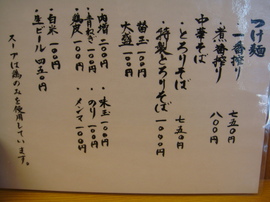 つけ麺
一番搾り 七五〇
煮番搾り 八〇〇
中華そば
・とろりそば 七五〇
・特製とろりそば 一〇〇〇
替玉 一〇〇円
大盛 一〇〇円
・肉増 一〇〇円
・味玉 一〇〇円
・青ねぎ 一〇〇円
・のり 一〇〇円
・鶏皮 一〇〇円
・メンマ 一〇〇円
・白米 一〇〇円
・生ビール 四五〇円
スープは鶏のみを使用しています。